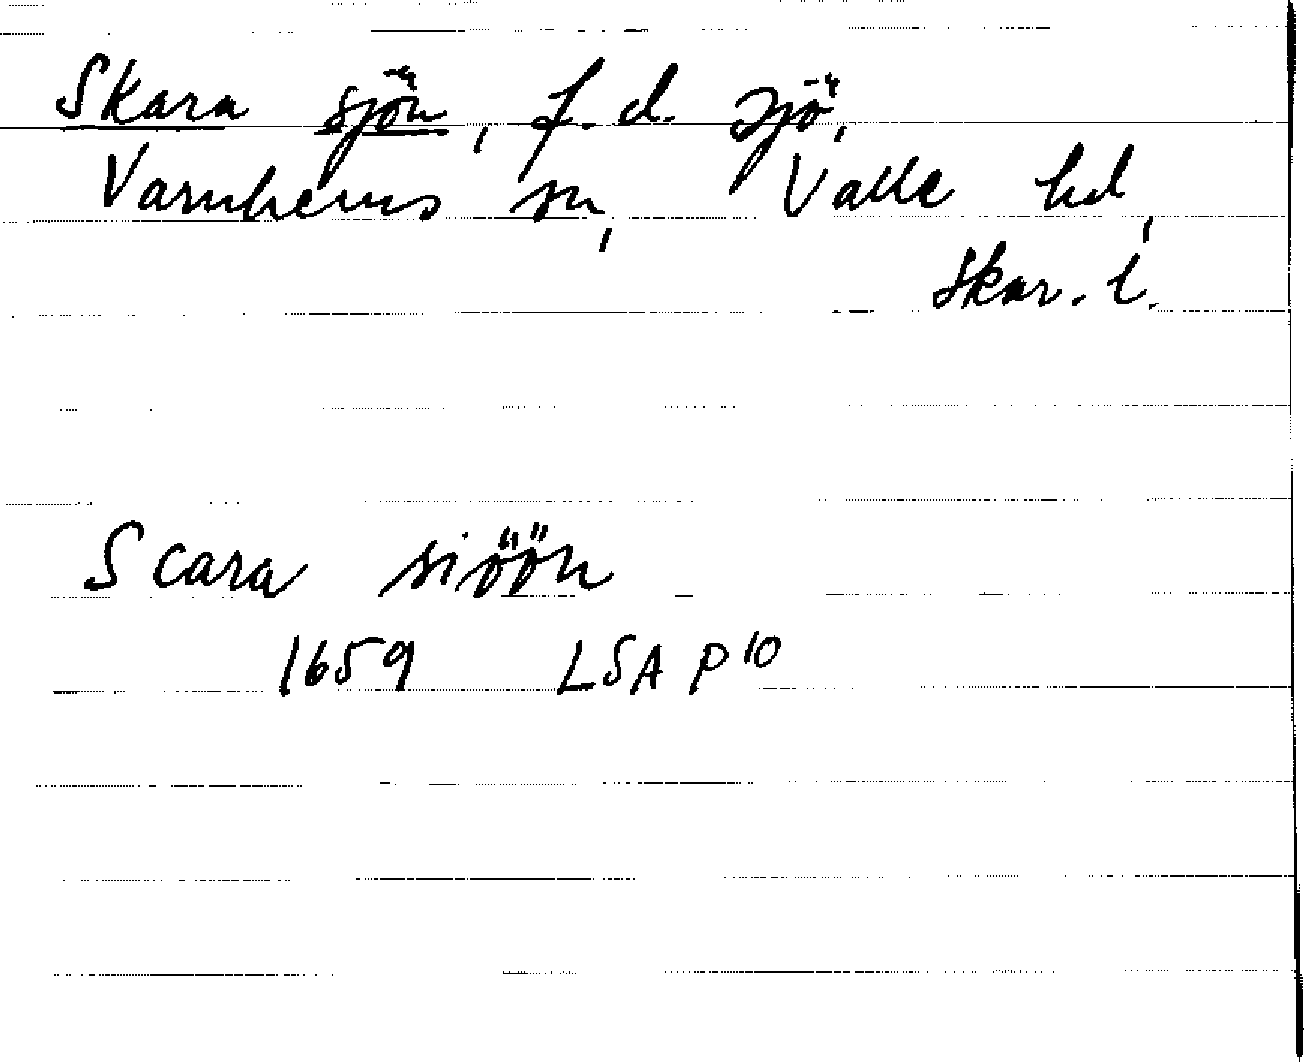 Skara sjön, f.d. sjö,
Varnhems sn, Valle hd,
Skar. l.
Scara siöön
1659 LSA P 10